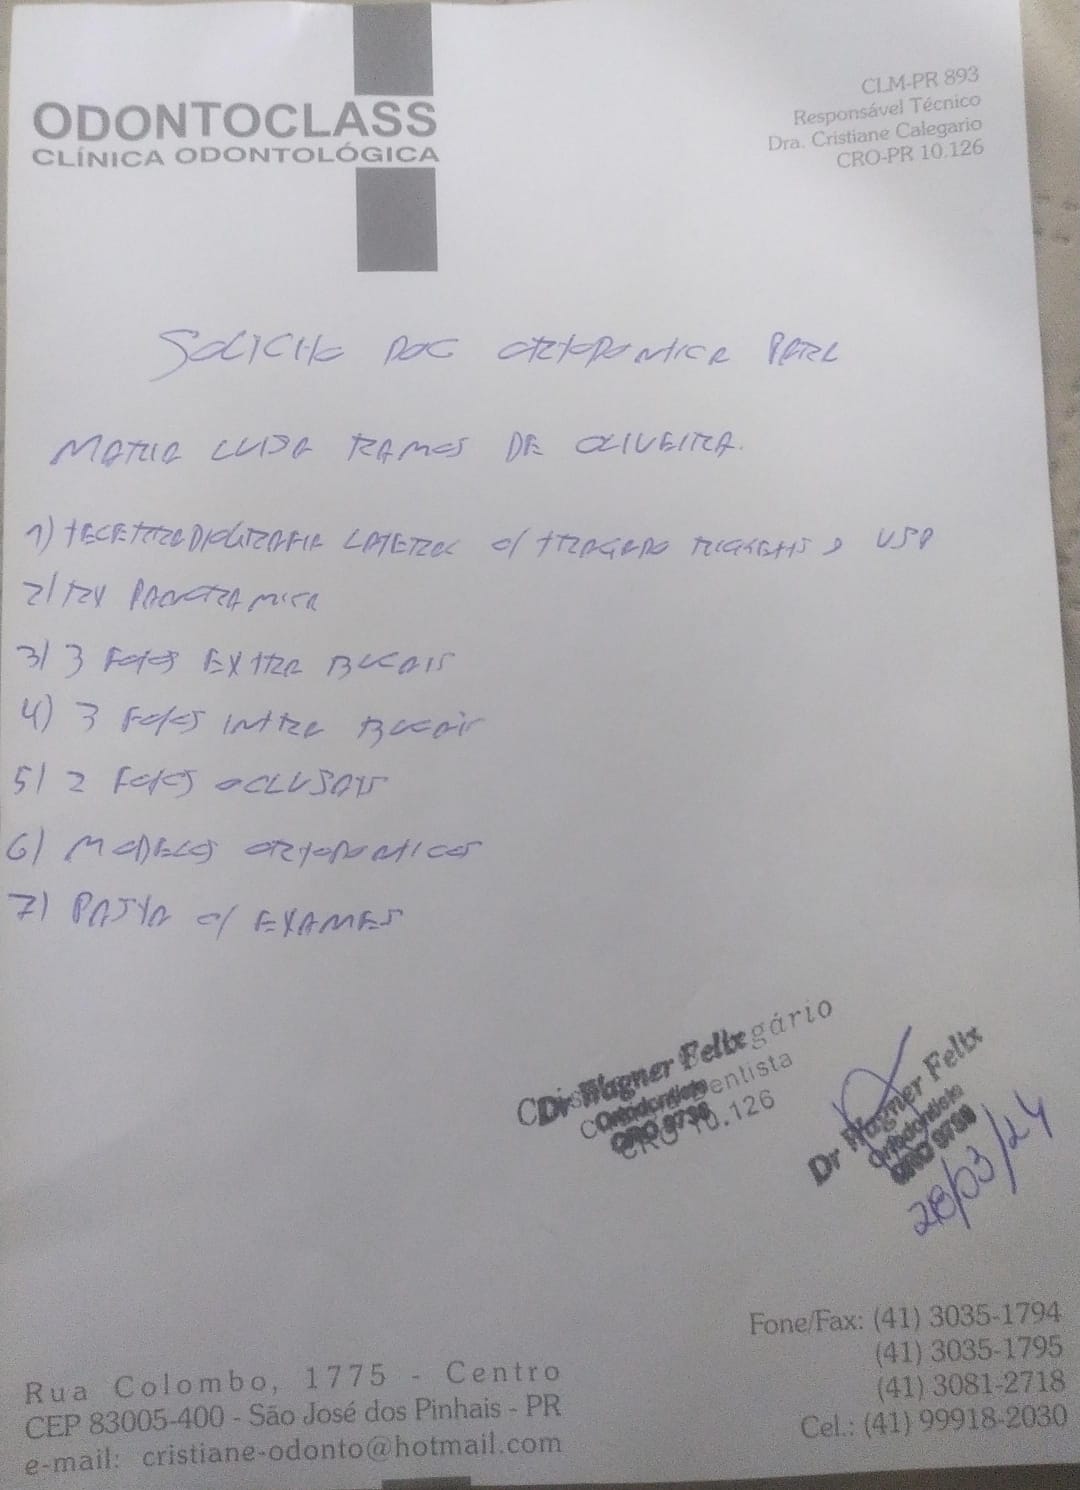 ODONTOCLASS
CLÍNICA ODONTOLÓGICA
CLM-PR 893
Responsável Técnico
Dra. Cristiane Calegario
CRO-PR 10.126
SOLICITO DOC ORTODONTICA PARA
MARIA LUISA RAMOS DE OLIVEIRA.
1) TELERRADIOGRAFIA LATERAL c/ TRAÇADO RICKETTS e USP
2) RX PANORAMICA
3) 3 FOTOS EXTRA BUCAIS
4) 3 FOTOS INTRA BUCAIS
5) 2 FOTOS OCLUSAIS
6) MODELOS ORTODONTICOS
7) PASTA c/ EXAMES
Dr Wagner Felix gário
Ortodontista entista
CRO 10.126
Dr Wagner Felix
Ortodontista
CRO 9798
28/03/24
Fone/Fax: (41) 3035-1794
(41) 3035-1795
(41) 3081-2718
Cel.: (41) 99918-2030
Rua Colombo, 1775 - Centro
CEP 83005-400 - São José dos Pinhais - PR
e-mail: cristiane-odonto@hotmail.com